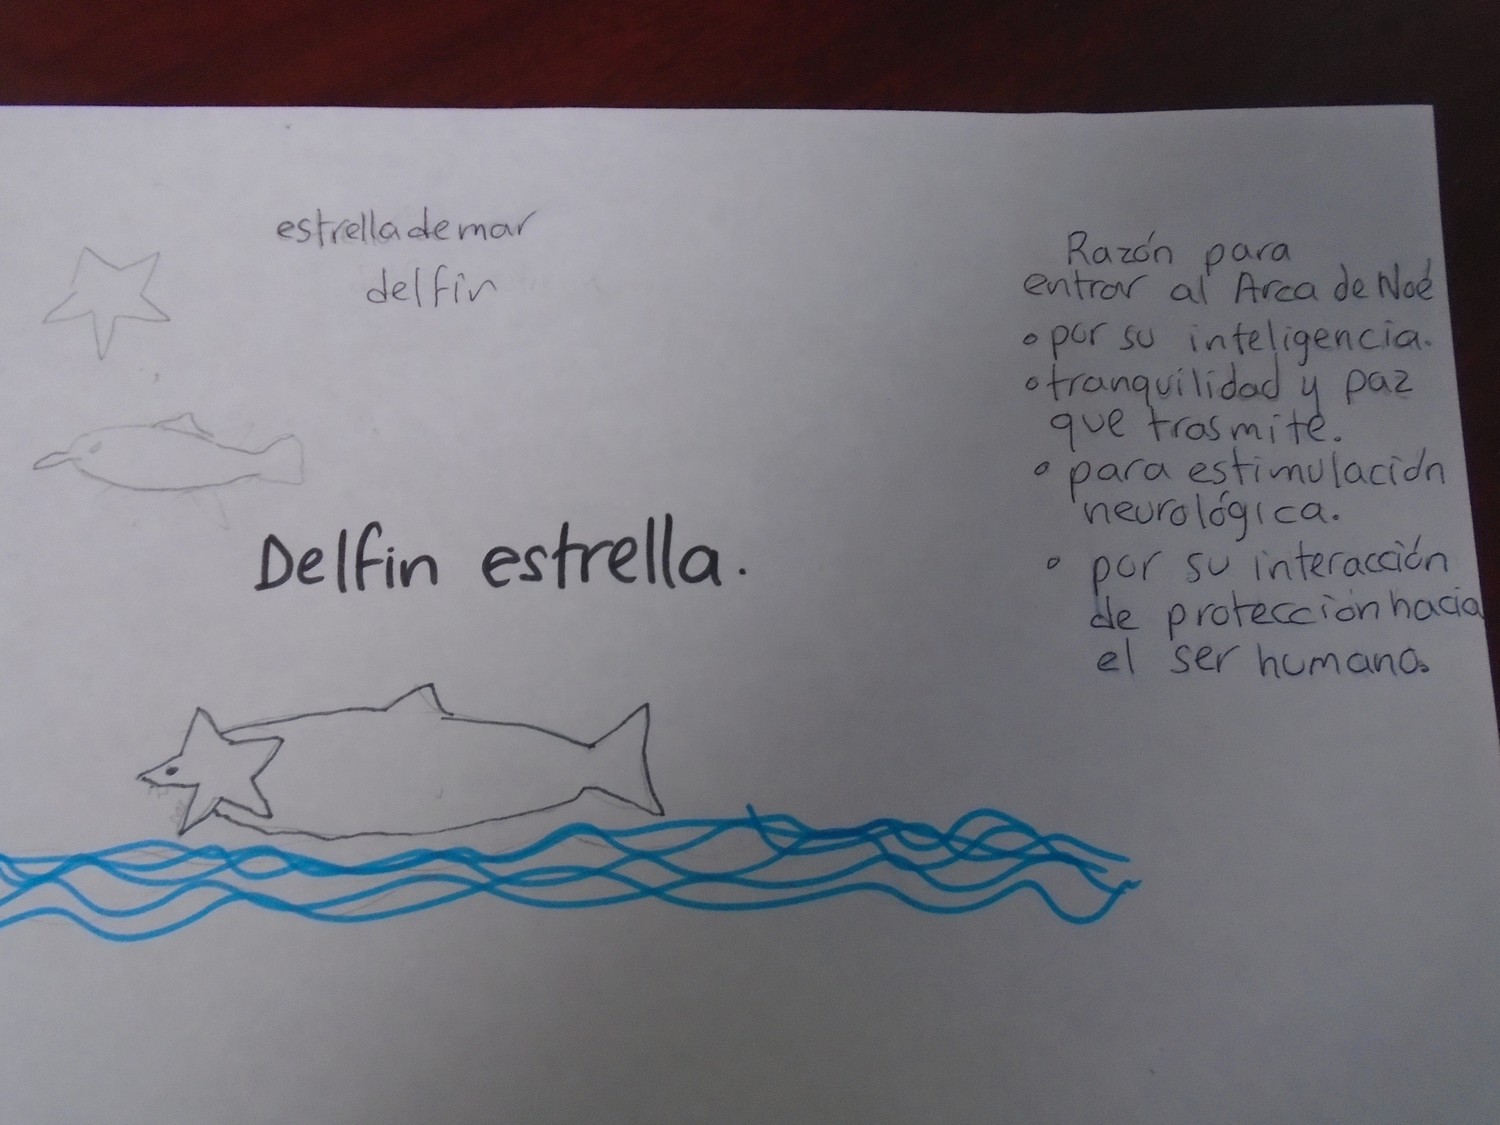 estrella de mar
delfín
Delfin estrella.
Razón para
entrar al Arca de Noé
• por su inteligencia.
• tranquilidad y paz
que trasmite.
• para estimulación
neurológica.
• por su interacción
de protección hacia
el ser humano.